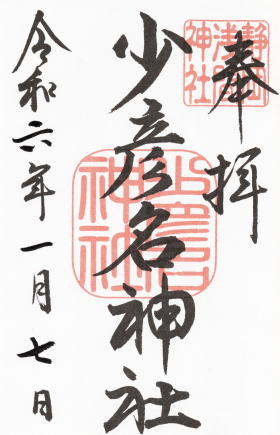 奉拝
静岡
浅間
神社
少彦名神社
少彦名
神社
令和六年一月七日